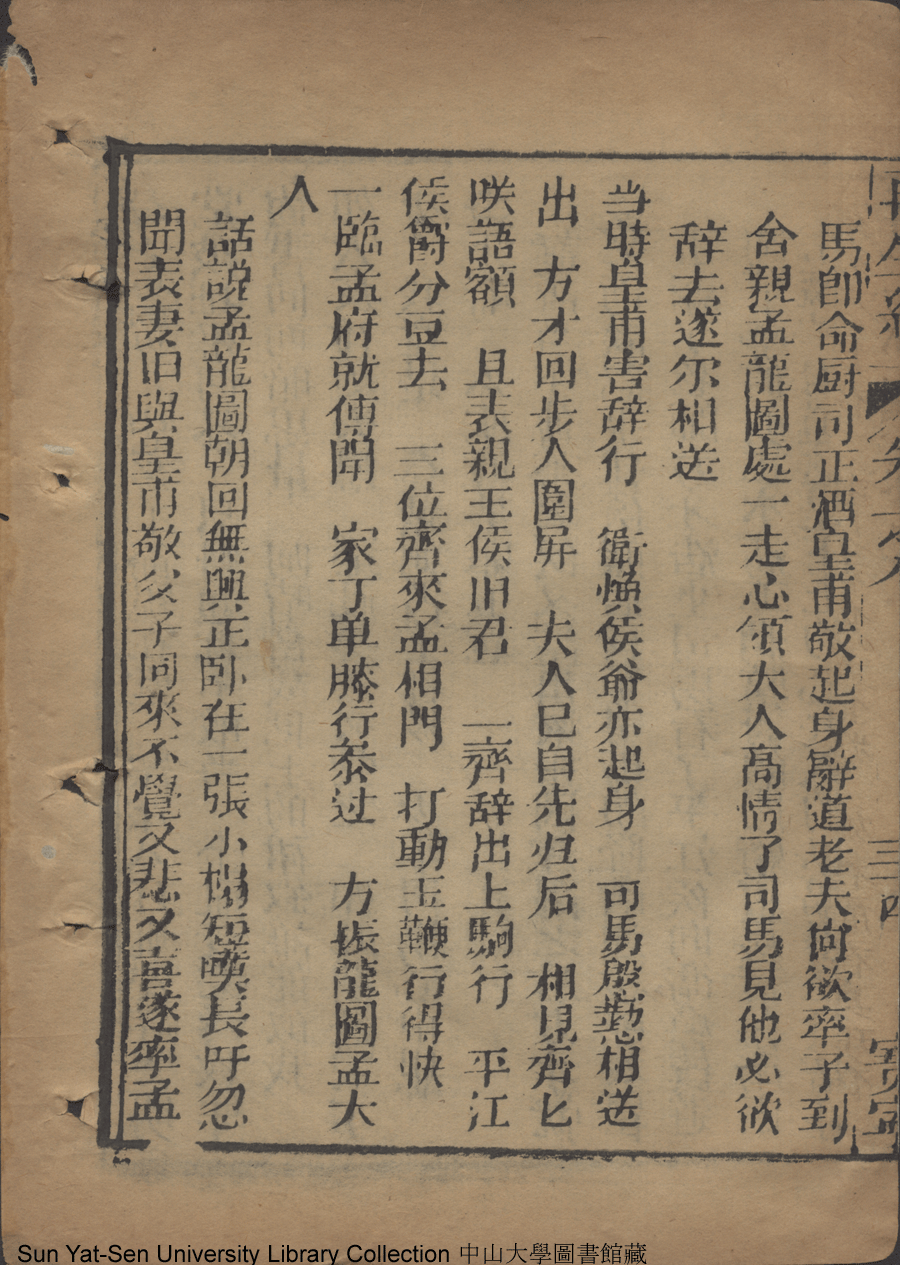 馬帥命厨司正酒皇甫敬起身辭道老夫尚欲率子到
舍親孟龍圖處一走心領大人高情了司馬見他必欲
辞去遂尔相送
当時皇甫害辞行　衛煥侯爺亦起身　司馬殷懃相送
出　方才回步入圍屏　夫人已自先归后　相見齊匕
咲語額　且表親王侯旧君　一齊辞出上駒行　平江
侯爵分豆去　三位齊來孟相門　打動玉鞭行得快
一臨孟府就傳聞　家丁单膝行叅过　方振龍圖孟大
人
話説孟龍圖朝回無興正卧在一張小榻短嘆長吁忽
聞表妻旧與皇甫敬父子同來不覺又悲又喜遂率孟
三四
Sun Yat-Sen University Library Collection 中山大學圖書館藏